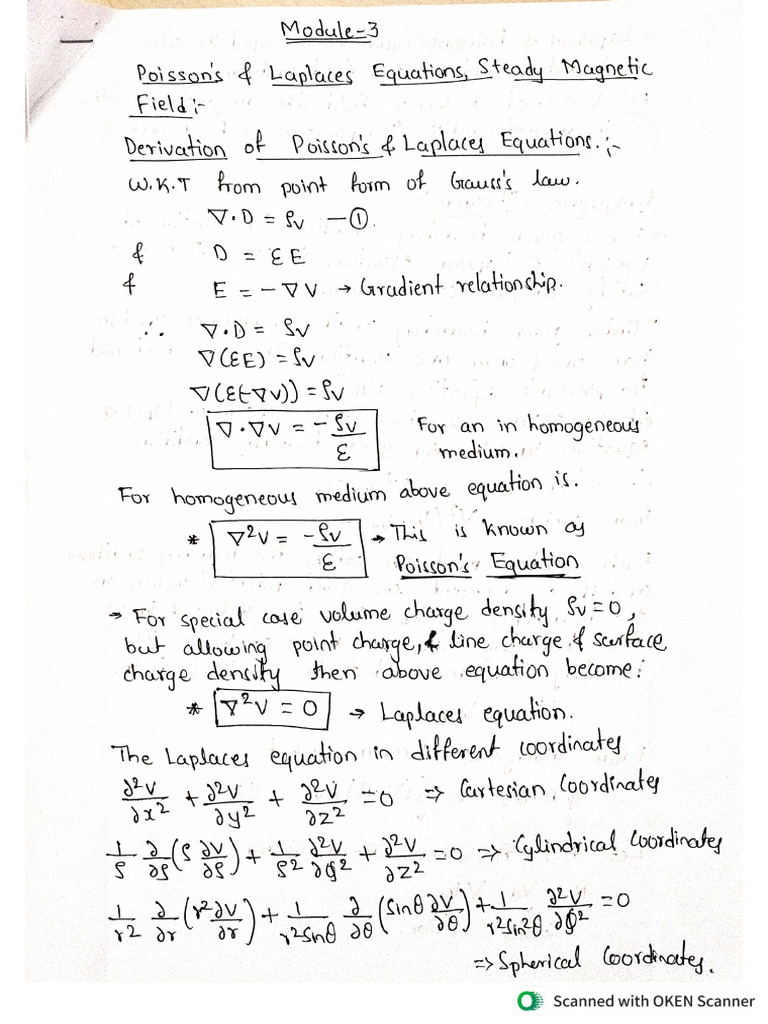 Module-3
Poisson's & Laplaces Equations, Steady Magnetic
Field:-
Derivation of Poisson's & Laplaces Equations.:-
W.K.T from point form of Gauss's law.
∇·D = ρv —①.
& D = εE
& E = -∇V → Gradient relationship.
∴ ∇·D = ρv
∇(εE) = ρv
∇(ε(-∇V)) = ρv
∇·∇V = -ρv/ε For an in homogeneous
medium.
For homogeneous medium above equation is.
* ∇²V = -ρv/ε → This is known as
Poisson's Equation
→ For special case volume charge density ρv = 0,
but allowing point charge, & line charge & surface
charge density then above equation become:
* ∇²V = 0 → Laplaces equation.
The Laplaces equation in different coordinates
∂²V/∂x² + ∂²V/∂y² + ∂²V/∂z² = 0 => Cartesian Coordinates
1/ρ ∂/∂ρ (ρ ∂V/∂ρ) + 1/ρ² ∂²V/∂φ² + ∂²V/∂z² = 0 => Cylindrical Coordinates
1/r² ∂/∂r (r² ∂V/∂r) + 1/r² sinθ ∂/∂θ (sinθ ∂V/∂θ) + 1/r² sin²θ ∂²V/∂φ² = 0
=> Spherical Coordinates.
Scanned with OKEN Scanner